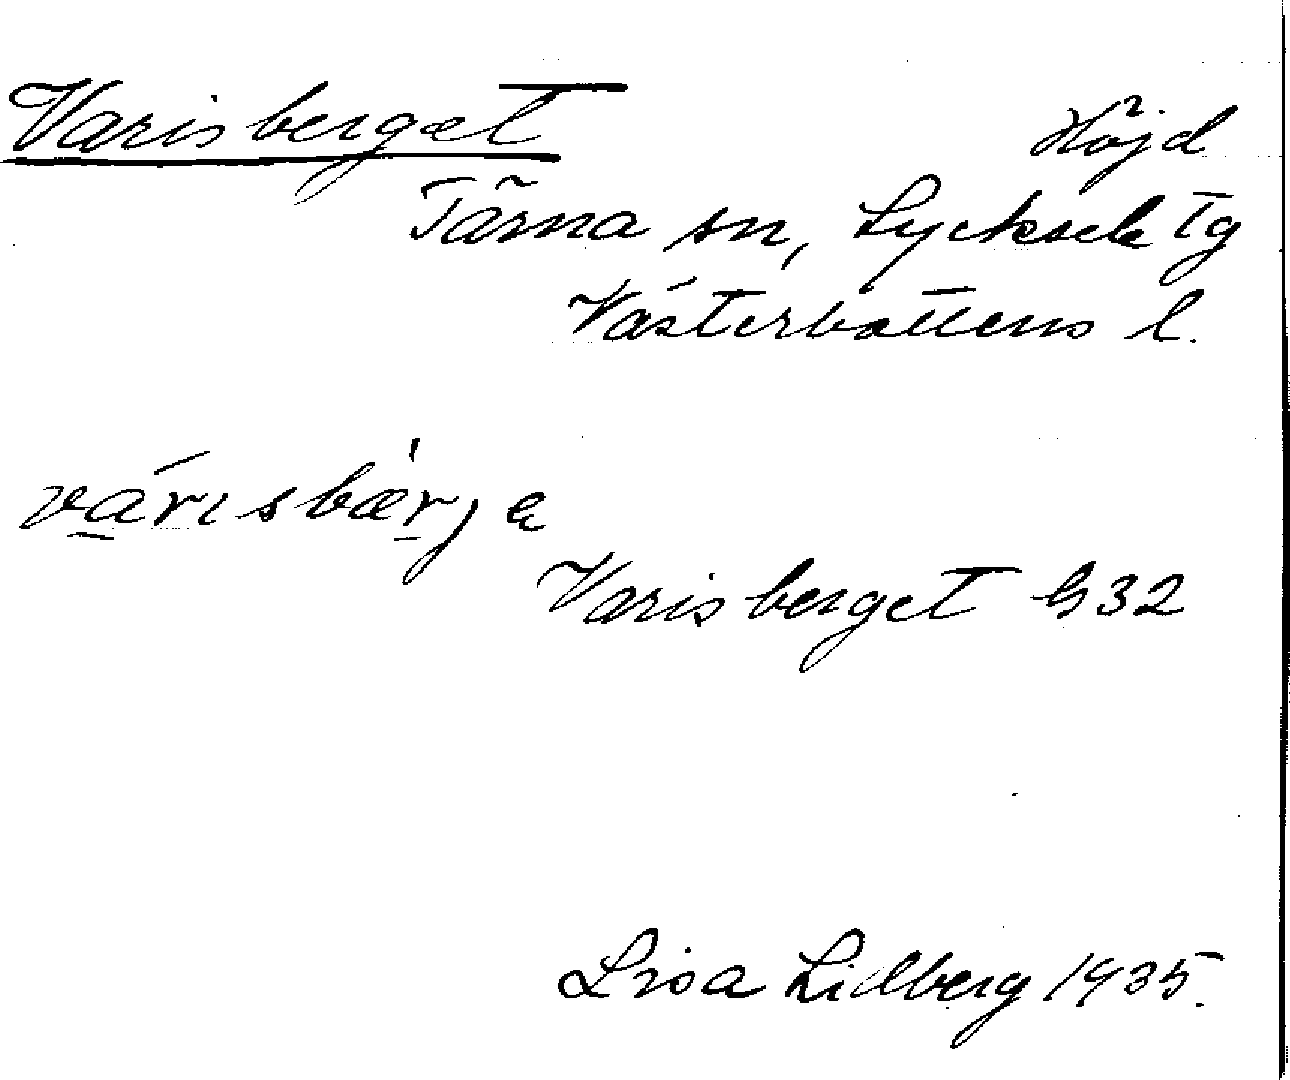 Varisberget
Höjd
Tärna sn, Lycksele tg
Västerbottens l.
várɩsbæ̀rjɐ
Varisberget G32
Lisa Lidberg 1935.